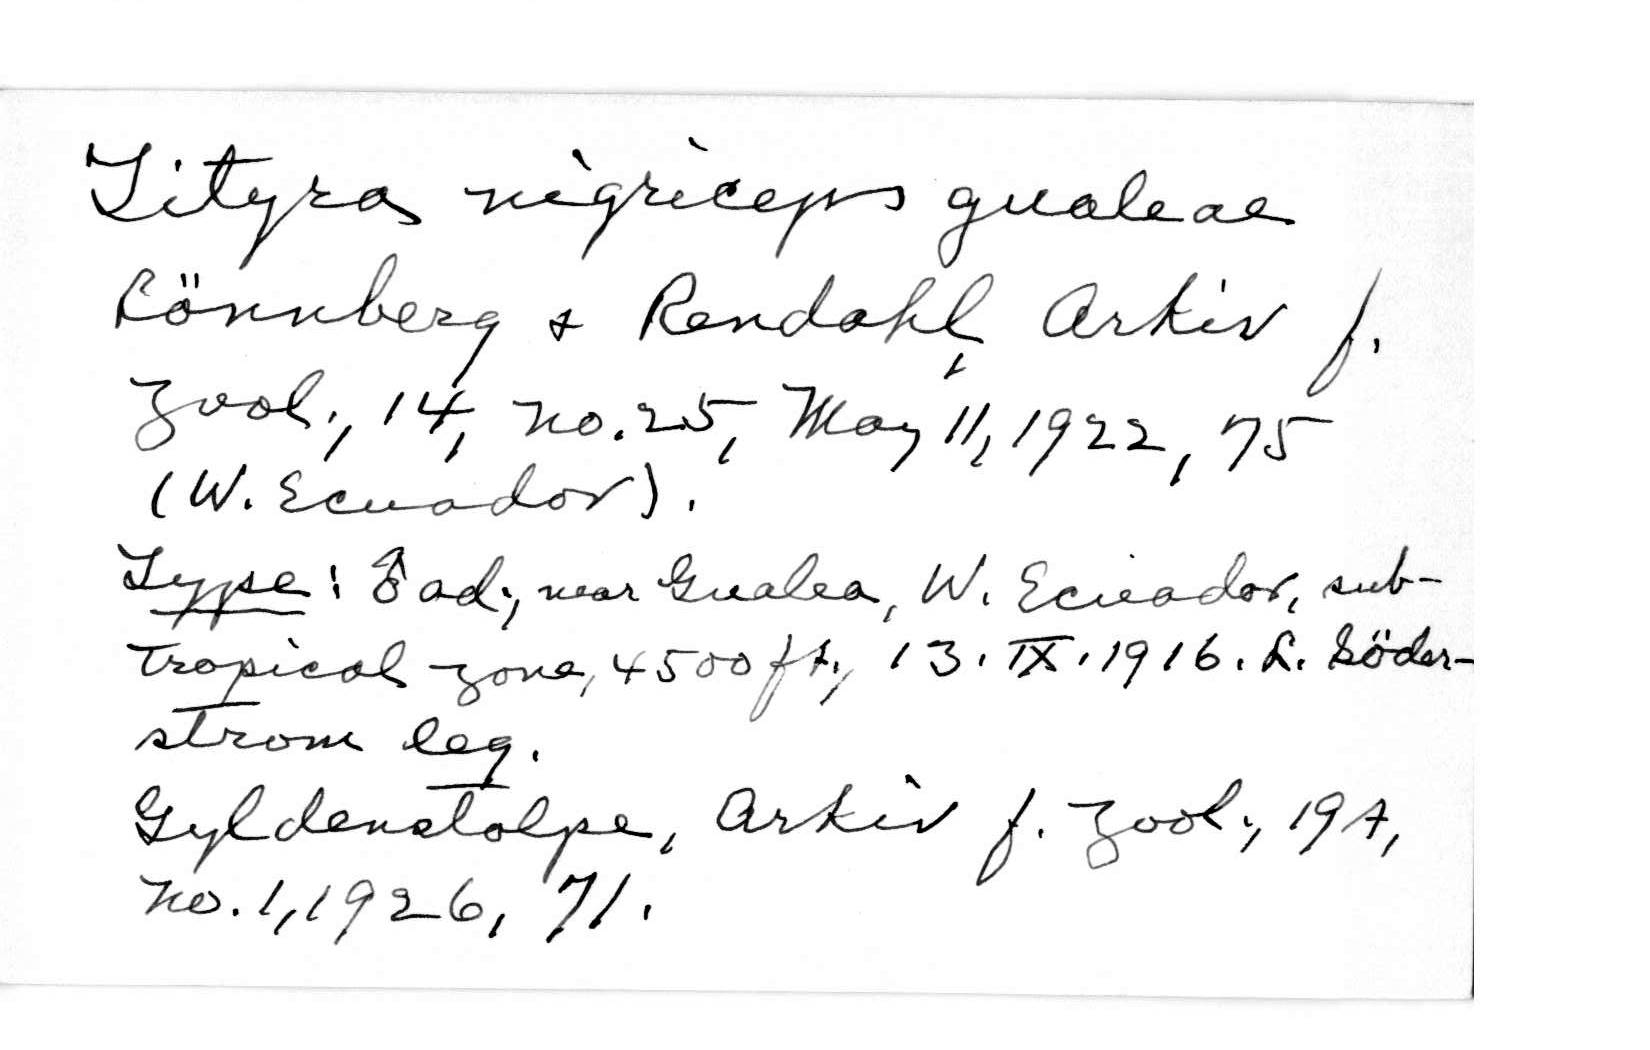 Tityra nigriceps gualeae
Lönnberg & Rendahl, Arkiv f.
Zool., 14, no. 25, May 11, 1922, 75
(W. Ecuador).
Type: ♂ ad., near Gualea, W. Ecuador, sub-
tropical zone, 4500 ft., 13.IX.1916. L. Söder-
strom leg.
Gyldenstolpe, Arkiv f. Zool., 19A,
no. 1, 1926, 71.